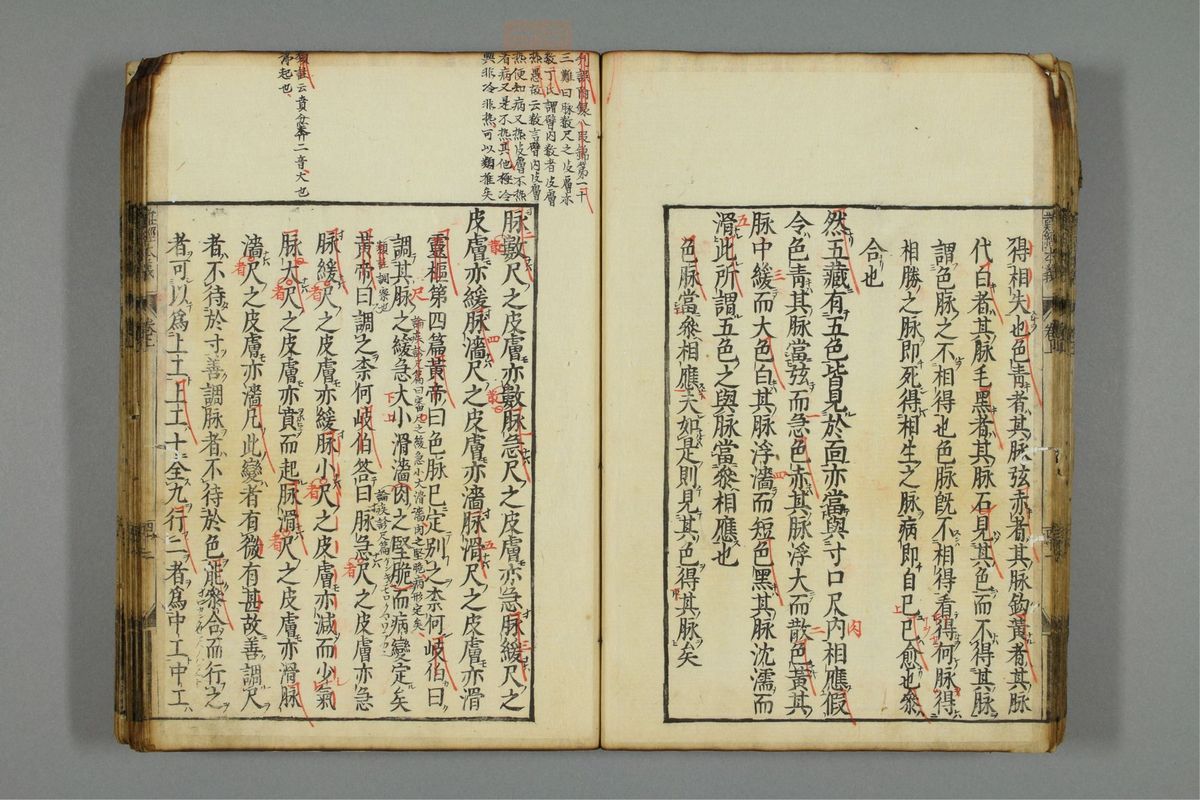 得相失也色靑者其脉弦赤者其脉鈎黃者其脉
代白者其脉毛黑者其脉石見其色而不得其脉
謂色脉之不相得也色脉旣不相得看得何脉得
相勝之脉即死得相生之脉病即自已已愈也參
合也
然五藏有五色皆見於面亦當與寸口尺內相應假
令色靑其脉當弦而急色赤其脉浮大而散色黃其
脉中緩而大色白其脉浮濇而短色黑其脉沈濡而
滑此所謂五色之與脉當參相應也
色脉當參相應夫如是則見其色得其脉矣
脉數尺之皮膚亦數脉急尺之皮膚亦急脉緩尺之
皮膚亦緩脉濇尺之皮膚亦濇脉滑尺之皮膚亦滑
靈樞第四篇黃帝曰色脉已定別之柰何岐伯曰
調其脉之緩急大小滑濇肉之堅脆而病變定矣
黃帝曰調之柰何岐伯答曰脉急尺之皮膚亦急
脉緩尺之皮膚亦緩脉小尺之皮膚亦減而少氣
脉大尺之皮膚亦賁而起脉滑尺之皮膚亦滑脉
濇尺之皮膚亦濇凡此變者有微有甚故善調尺
者不待於寸善調脉者不待於色能參合而行之
者可以爲上工上工十全九行二者爲中工中工
三難曰脉數尺之皮膚亦
數丁氏謂臂內數者皮膚
熱愚故云數言臂內皮膚
熱便知病又熱皮膚不熱
者病又是不熱其他極冷
興非冷非熱可以類推矣
類註云賁忿奔二音大也
沸起也